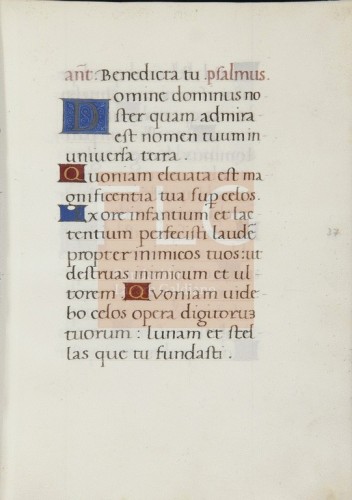 anͫt: Benedicta tu psalmus.
Domine dominus no
ster quam admira
est nomen tuum in
universa terra.
Quoniam elevata est ma
gnificentia tua sup celos.
Ex ore infantium et lac
tentium perfecisti laudē
propter inimicos tuos: ut
destruas inimicum et ul
torem Quoniam uide
bo celos opera digitorum
tuorum: lunam et stel
las que tu fundasti.
37
FLG